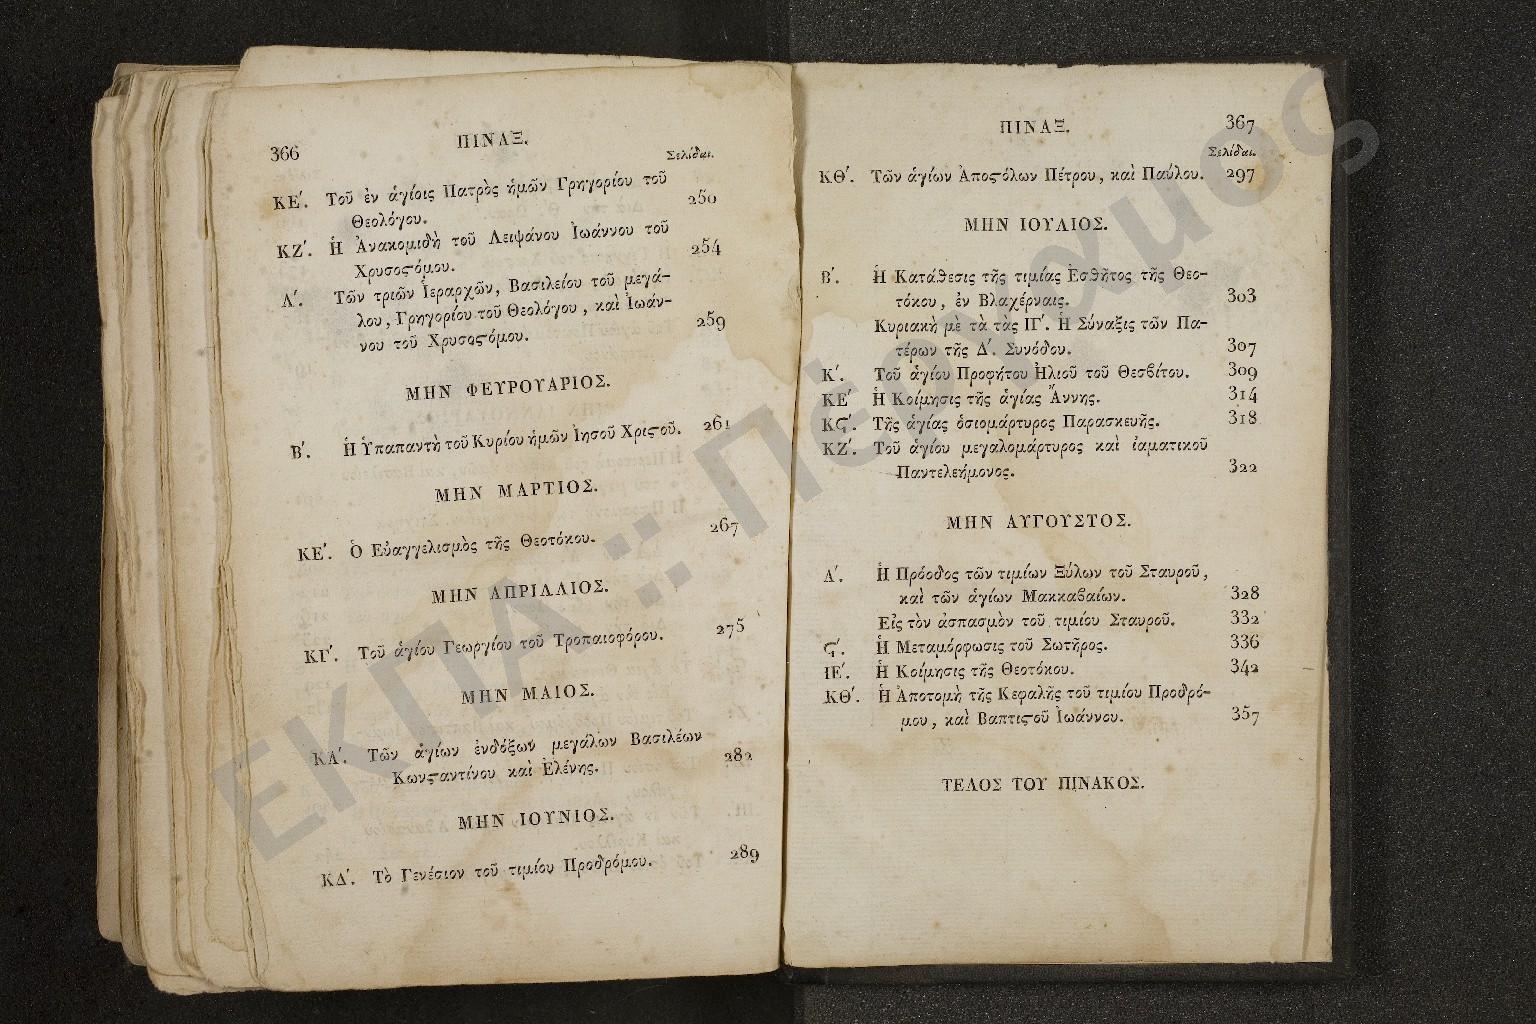 366
ΠΙΝΑΞ.
Σελίδαι.
ΚΕ΄. Τοῦ ἐν ἁγίοις Πατρὸς ἡμῶν Γρηγορίου τοῦ
Θεολόγου. 250
ΚΖ΄. Ἡ Ἀνακομιδὴ τοῦ Λειψάνου Ἰωάννου τοῦ
Χρυσοϛόμου. 254
Λ΄. Τῶν τριῶν Ἱεραρχῶν, Βασιλείου τοῦ μεγά-
λου, Γρηγορίου τοῦ Θεολόγου, καὶ Ἰωάν-
νου τοῦ Χρυσοϛόμου. 259
ΜΗΝ ΦΕΥΡΟΥΑΡΙΟΣ.
Β΄. Ἡ Ὑπαπαντὴ τοῦ Κυρίου ἡμῶν Ἰησοῦ Χριϛοῦ. 261
ΜΗΝ ΜΑΡΤΙΟΣ.
ΚΕ΄. Ὁ Εὐαγγελισμὸς τῆς Θεοτόκου. 267
ΜΗΝ ΑΠΡΙΛΛΙΟΣ.
ΚΓ΄. Τοῦ ἁγίου Γεωργίου τοῦ Τροπαιοφόρου. 275
ΜΗΝ ΜΑΙΟΣ.
ΚΑ΄. Τῶν ἁγίων ἐνδόξων μεγάλων Βασιλέων
Κωνϛαντίνου καὶ Ἑλένης. 282
ΜΗΝ ΙΟΥΝΙΟΣ.
ΚΔ΄. Τὸ Γενέσιον τοῦ τιμίου Προδρόμου. 289
ΠΙΝΑΞ. 367
Σελίδαι.
ΚΘ΄. Τῶν ἁγίων Ἀποϛόλων Πέτρου, καὶ Παύλου. 297
ΜΗΝ ΙΟΥΛΙΟΣ.
Β΄. Ἡ Κατάθεσις τῆς τιμίας Ἐσθῆτος τῆς Θεο-
τόκου, ἐν Βλαχέρναις. 303
Κυριακὴ μὲ τὰ τὰς ΙΓ΄. Ἡ Σύναξις τῶν Πα-
τέρων τῆς Δ΄. Συνόδου. 307
Κ΄. Τοῦ ἁγίου Προφήτου Ἠλιοῦ τοῦ Θεσβίτου. 309
ΚΕ΄ Ἡ Κοίμησις τῆς ἁγίας Ἄννης. 314
ΚϚ΄. Τῆς ἁγίας ὁσιομάρτυρος Παρασκευῆς. 318
ΚΖ΄. Τοῦ ἁγίου μεγαλομάρτυρος καὶ ἰαματικοῦ
Παντελεήμονος. 322
ΜΗΝ ΑΥΓΟΥΣΤΟΣ.
Α΄. Ἡ Πρόοδος τῶν τιμίων Ξύλων τοῦ Σταυροῦ,
καὶ τῶν ἁγίων Μακκαβαίων. 328
Εἰς τὸν ἀσπασμὸν τοῦ τιμίου Σταυροῦ. 332
Ϛ΄. Ἡ Μεταμόρφωσις τοῦ Σωτῆρος. 336
ΙΕ΄. Ἡ Κοίμησις τῆς Θεοτόκου. 342
ΚΘ΄. Ἡ Ἀποτομὴ τῆς Κεφαλῆς τοῦ τιμίου Προδρό-
μου, καὶ Βαπτιϛοῦ Ἰωάννου. 357
ΤΕΛΟΣ ΤΟΥ ΠΙΝΑΚΟΣ.
ΕΚΠΑ :: Πέργαμος